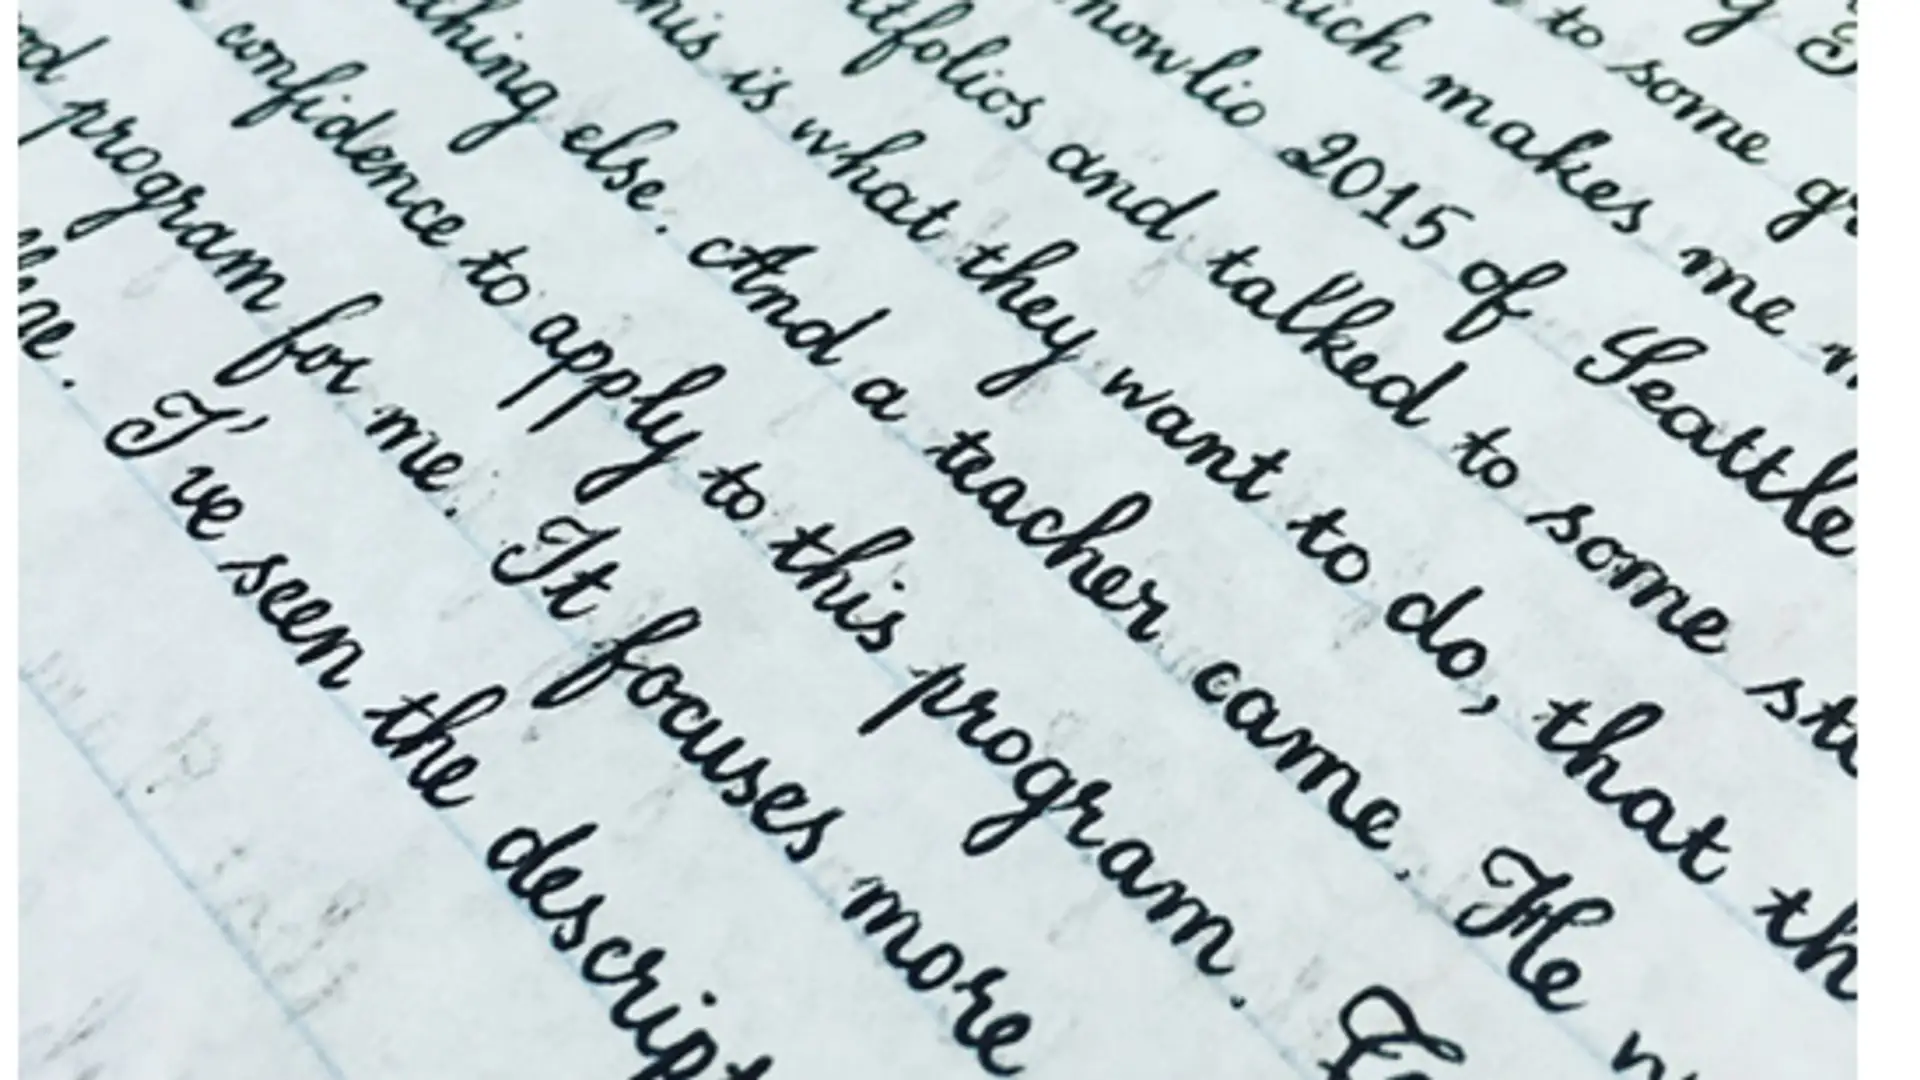 to some gr
ich makes me
nowlio 2015 of Seattle
tfolios and talked to some st
his is what they want to do, that th
thing else. And a teacher came. He
confidence to apply to this program.
od program for me. It focuses more
I've seen the descript